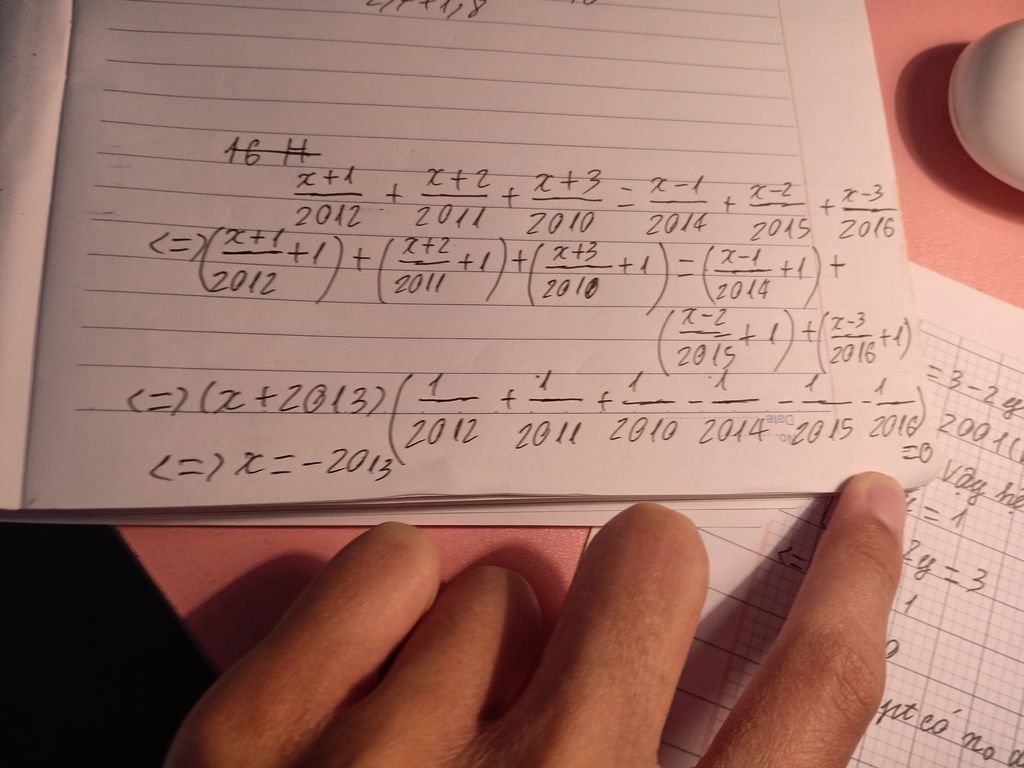 16 H
x+1/2012 + x+2/2011 + x+3/2010 = x-1/2014 + x-2/2015 + x-3/2016
<=> (x+1/2012 + 1) + (x+2/2011 + 1) + (x+3/2010 + 1) = (x-1/2014 + 1) +
(x-2/2015 + 1) + (x-3/2016 + 1)
<=> (x+2013) (1/2012 + 1/2011 + 1/2010 - 1/2014 - 1/2015 - 1/2016)
=0
<=> x = -2013
No.
Date
= 3-2y
2001(
Vậy hệ
= 1
<=
2y = 3
1
0
pt có no